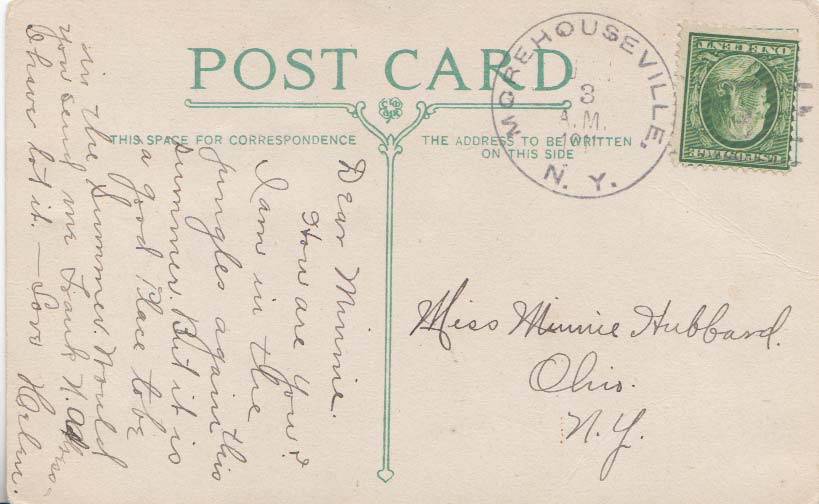 POST CARD
THIS SPACE FOR CORRESPONDENCE
THE ADDRESS TO BE WRITTEN
ON THIS SIDE
MOREHOUSEVILLE,
3
A.M.
N. Y.
ONE CENT
U.S. POSTAGE
Dear Minnie.
How are you?
I am in the
jungles again this
summer. But it is
a good Place to be
in the Summer. Would
you send me Frank N.
I have lost it. – Love Helen.
Miss Minnie Hubbard.
Ohio.
N.Y.